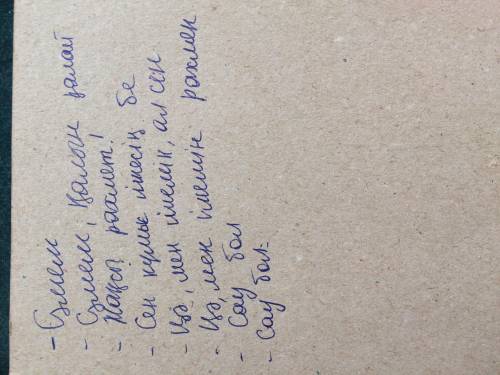 - Сәлем
- Сәлем, қалың қалай
- Жақсы рахмет!
- Сен құмыс ішесің бе
- Иә, мен ішемін, ал сен
- Иә, мен ішемін рахмет
- Сау бол
- Сау бол.